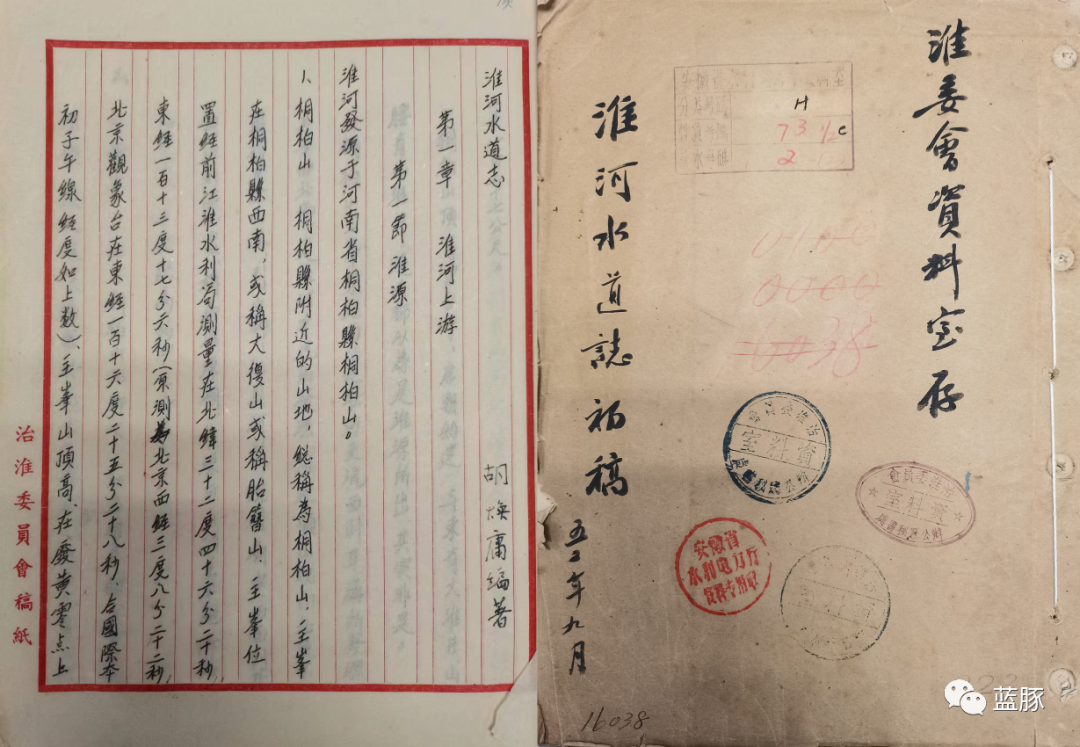 淮河水道志
第一章 淮河上游
第一节 淮源
胡煥庸编著
淮河發源于河南省桐柏縣桐柏山。
1、桐柏山 桐柏縣附近的山地，総稱為桐柏山，主峯
在桐柏縣西南，或稱大復山或稱胎簪山，主峯位
置經前江淮水利局測量在北緯三十二度四十六分二十秒，
東經一百十三度十七分六秒（原測為北京西經三度八分二十二秒，
北京觀象台在東經一百十六度二十五分二十八秒，合國際本
初子午線經度如上数）、主峯山頂高，在廢黄零点上
治淮委員會稿紙
淮委會資料室存
淮河水道誌初稿
五二年九月
H
73 1/2 C
2
資料室
治淮委員會
資料室
安徽省
水利电力厅
資料专用章
16038
蓝豚